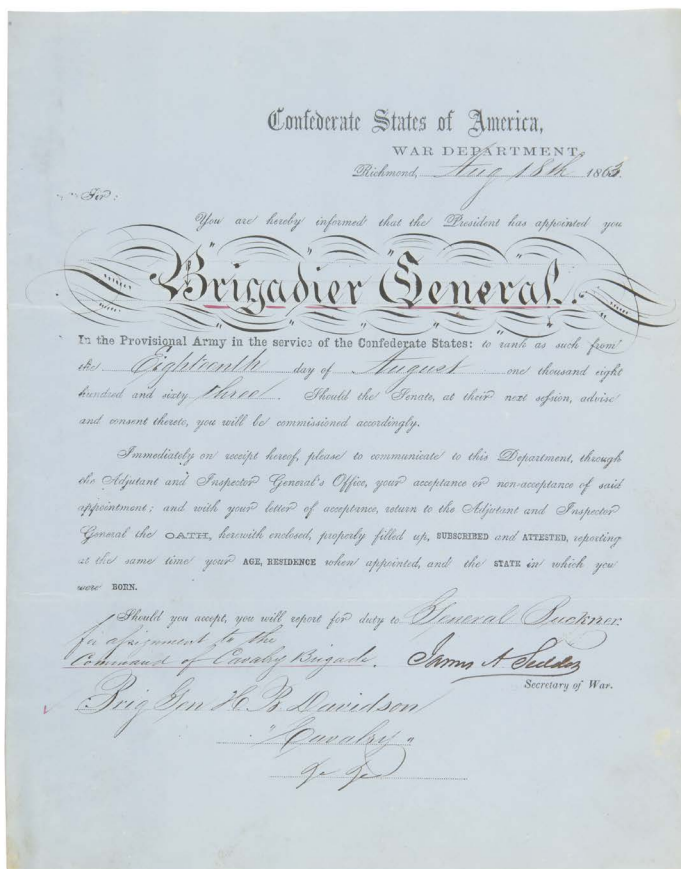 Confederate States of America,
WAR DEPARTMENT,
Richmond, Aug 18th 1863.
Sir:
You are hereby informed that the President has appointed you
Brigadier General.
In the Provisional Army in the service of the Confederate States: to rank as such from
the Eighteenth day of August one thousand eight
hundred and sixty three. Should the Senate, at their next session, advise
and consent thereto, you will be commissioned accordingly.
Immediately on receipt hereof, please to communicate to this Department, through
the Adjutant and Inspector General's Office, your acceptance or non-acceptance of said
appointment; and with your letter of acceptance, return to the Adjutant and Inspector
General the OATH, herewith enclosed, properly filled up, SUBSCRIBED and ATTESTED, reporting
at the same time your AGE, RESIDENCE when appointed, and the STATE in which you
were BORN.
Should you accept, you will report for duty to General Buckner
for assignment to the
Command of Cavalry Brigade. James A Seddon
Secretary of War.
Brig Gen H. B. Davidson
"Cavalry"